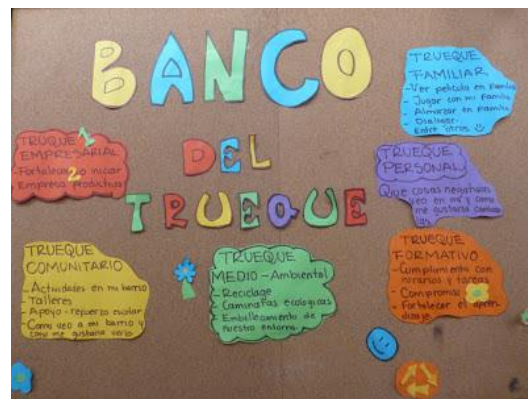 BANCO
DEL
TRUEQUE
TRUEQUE
FAMILIAR
-Ver película en Familia
- Jugar con mi Familia
- Almorzar en Familia
- Dialogar.
Entre otros
TRUQUE 1
EMPRESARIAL
-Fortalecer o iniciar
2
Empresa productiva
TRUEQUE
PERSONAL
Que cosas negativas
veo en mi y como
me gustaria
TRUEQUE
COMUNITARIO
- Actividades en mi barrio
- Talleres
- Apoyo - refuerzo escolar
- Como veo a mi barrio y
como me gustaria verlo
TRUEQUE
MEDIO - Ambiental
- Reciclage
- Caminatas ecologicas
- Embellecimiento de
nuestro entorno.
TRUEQUE
FORMATIVO
- Cumplimiento con
horarios y tareas
- Compromiso
- Fortalecer el apren
dizaje